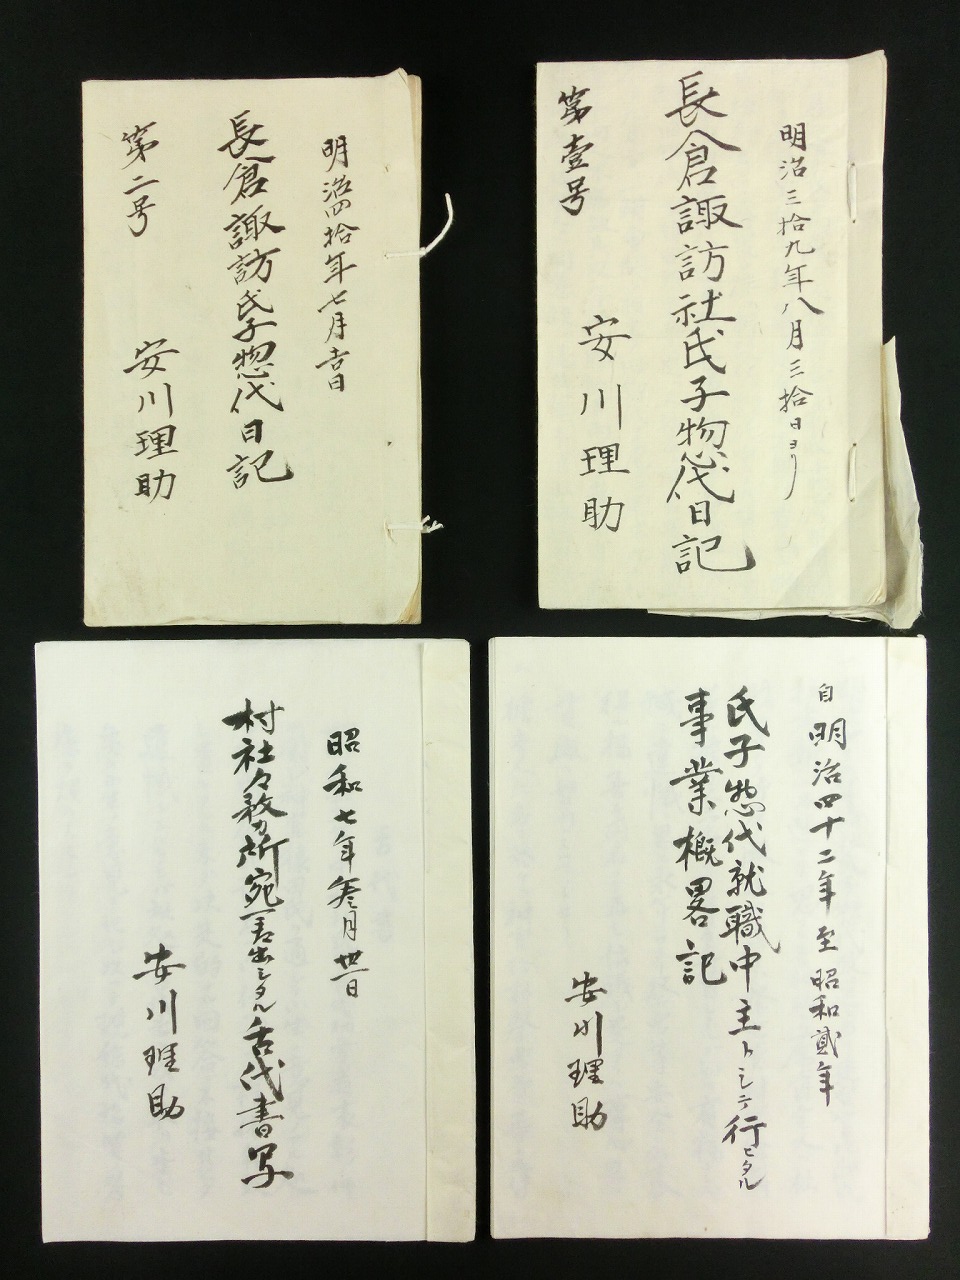 明治三拾九年八月三拾日ヨリ
長倉諏訪社氏子惣代日記
第壹号
安川理助
明治四拾年七月
長倉諏訪氏子惣代日記
第二号
安川理助
自明治四十二年至昭和貳年
氏子惣代就職中主トシテ行ヒタル
事業概畧記
安川理助
昭和七年叁月卅一日
村社々務所宛差出シタル舌代書写
安川理助